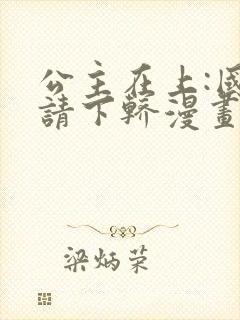 公主在上:國
請下轎漫畫
梁炳荣